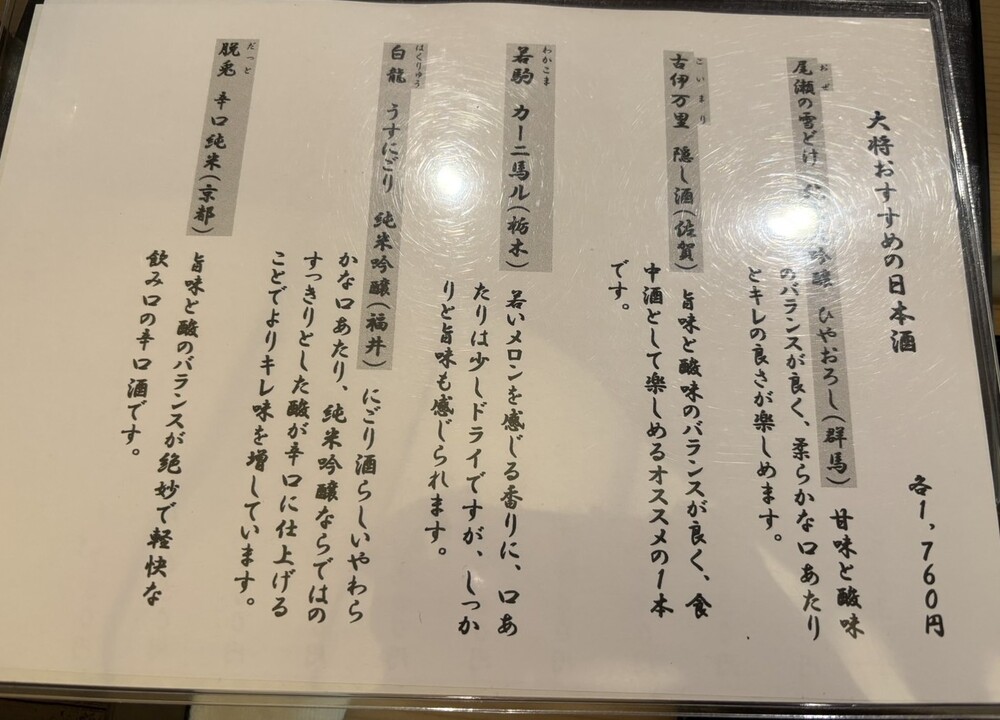 大将おすすめの日本酒
各1,760円
おぜ
尾瀬の雪どけ 吟醸 ひやおろし(群馬) 甘味と酸味
のバランスが良く、柔らかな口あたり
とキレの良さが楽しめます。
こいまり
古伊万里 隠し酒(佐賀) 旨味と酸味のバランスが良く、食
中酒として楽しめるオススメの1本
です。
わかこま
若駒 カーニ馬ル(栃木) 若いメロンを感じる香りに、口あ
たりは少しドライですが、しっか
りと旨味も感じられます。
はくりゅう
白龍 うすにごり 純米吟醸(福井) にごり酒らしいやわら
かな口あたり、純米吟醸ならではの
すっきりとした酸が辛口に仕上げる
ことでよりキレ味を増しています。
だっと
脱兎 辛口純米(京都) 旨味と酸のバランスが絶妙で軽快な
飲み口の辛口酒です。